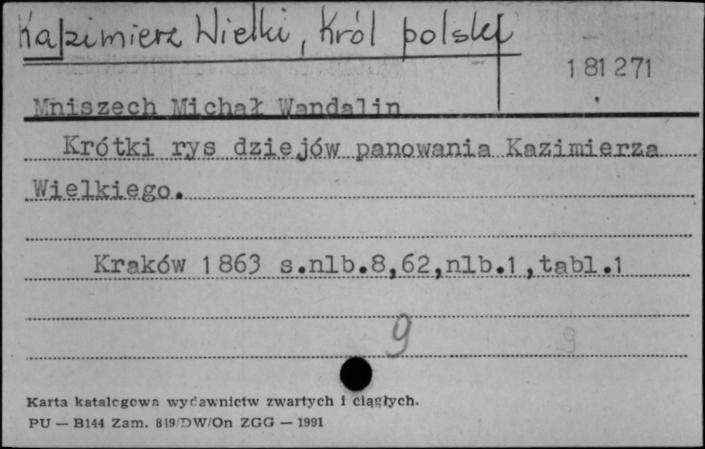 Kazimierz Wielki, Król polski
181271
Mniszech Michał Wandalin
Krótki rys dziejów panowania Kazimierza
Wielkiego.
Kraków 1863 s.nlb.8,62,nlb.1,tabl.1
9
9
Karta katalogowa wydawnictw zwartych i ciągłych.
PU — B144 Zam. 849/DW/On ZGG — 1991